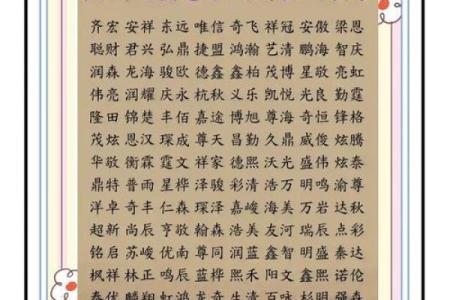 齐宏 安祥 东远 唯信 奇飞 祥冠 安傲 梁恩
聪财 君兴 弘鼎 捷盟 鸿瀚 艺清 鹏海 智庆
润森 龙海 骏欧 德鑫 鑫柏 茂博 星敬 亮虹
伟亮 润耀 庆永 杭秋 义乐 凯悦 光良 勤霆
隆田 锦楚 丰佰 嘉途 博旭 尊海 奇恒 锋格
茂炫 恩汉 琛成 尊天 昌勤 久鼎 威俊 炫腾
华敬 衡霖 霆文 祥家 德熙 沃光 盛伟 炫泰
鼎特 普雨 星桦 泽骏 彩清 浩万 明鸣 渝尊
洋卓 奇丰 仁森 琛森 嘉峻 美万 岩 达秋
超新 尚辰 亨敬 瀚尊 海友 河瑞 辰盛 点彩
铭启 苏峻 优南 尊同 润蓝 鑫智 明盛 泰达
枫祥 林正 鸣辰 蓝桦 熙禾 阳文 熙 诺伦